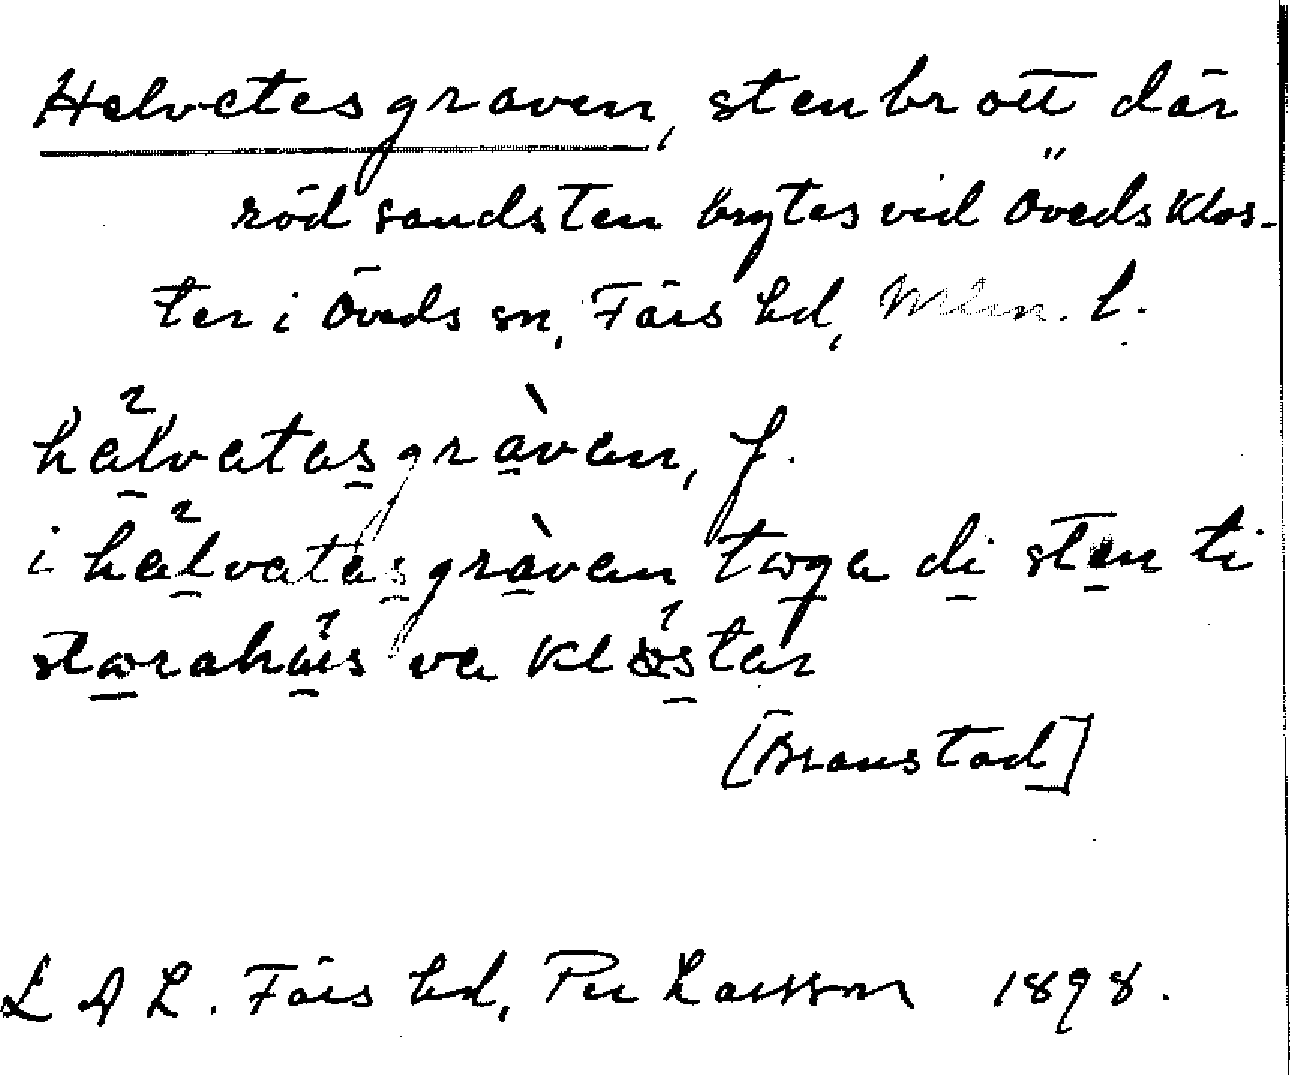 Helvetesgraven, stenbrott där
röd sandsten brytes vid Öveds klos-
ter i Öveds sn, Färs hd, Mlm. l.
hälvatasgràvan, f.
i hälvatasgràvan toga di sten ti
storahus va klostar
[Branstad]
L A L. Färs hd, Per Larsson 1898.